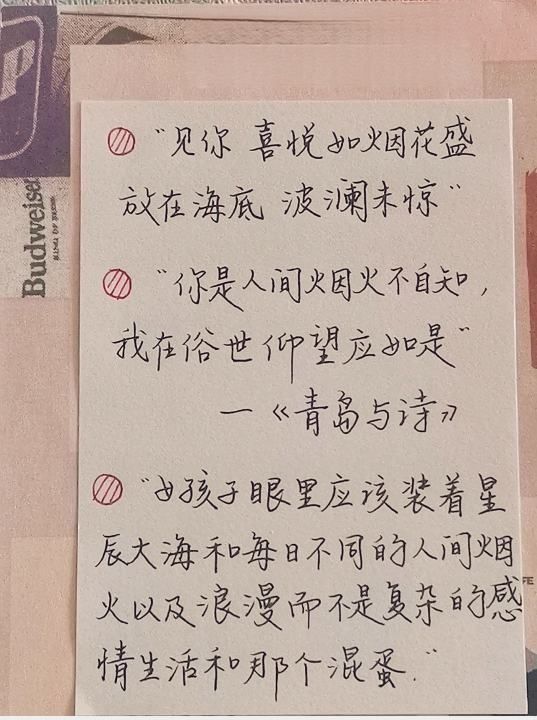 P
Budweiser
KING OF BEERS
"见你 喜悦如烟花盛
放在海底 波澜未惊"
"你是人间烟火不自知,
我在俗世仰望应如是"
—《青岛与诗》
"女孩子眼里应该装着星
辰大海和每日不同的人间烟
火以及浪漫而不是复杂的感
情生活和那个混蛋."
FE